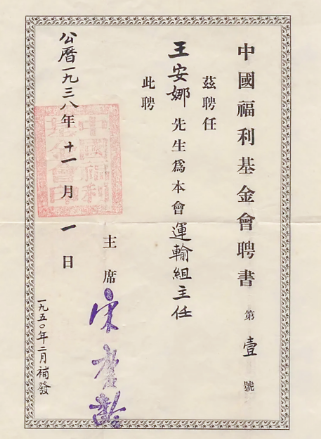 中國福利基金會聘書 第壹號
茲聘任
王安娜先生為本會運輸組主任
此聘
主席 宋慶齡
公曆一九三八年十一月一日
一九五〇年二月補發
中國福利基金會印